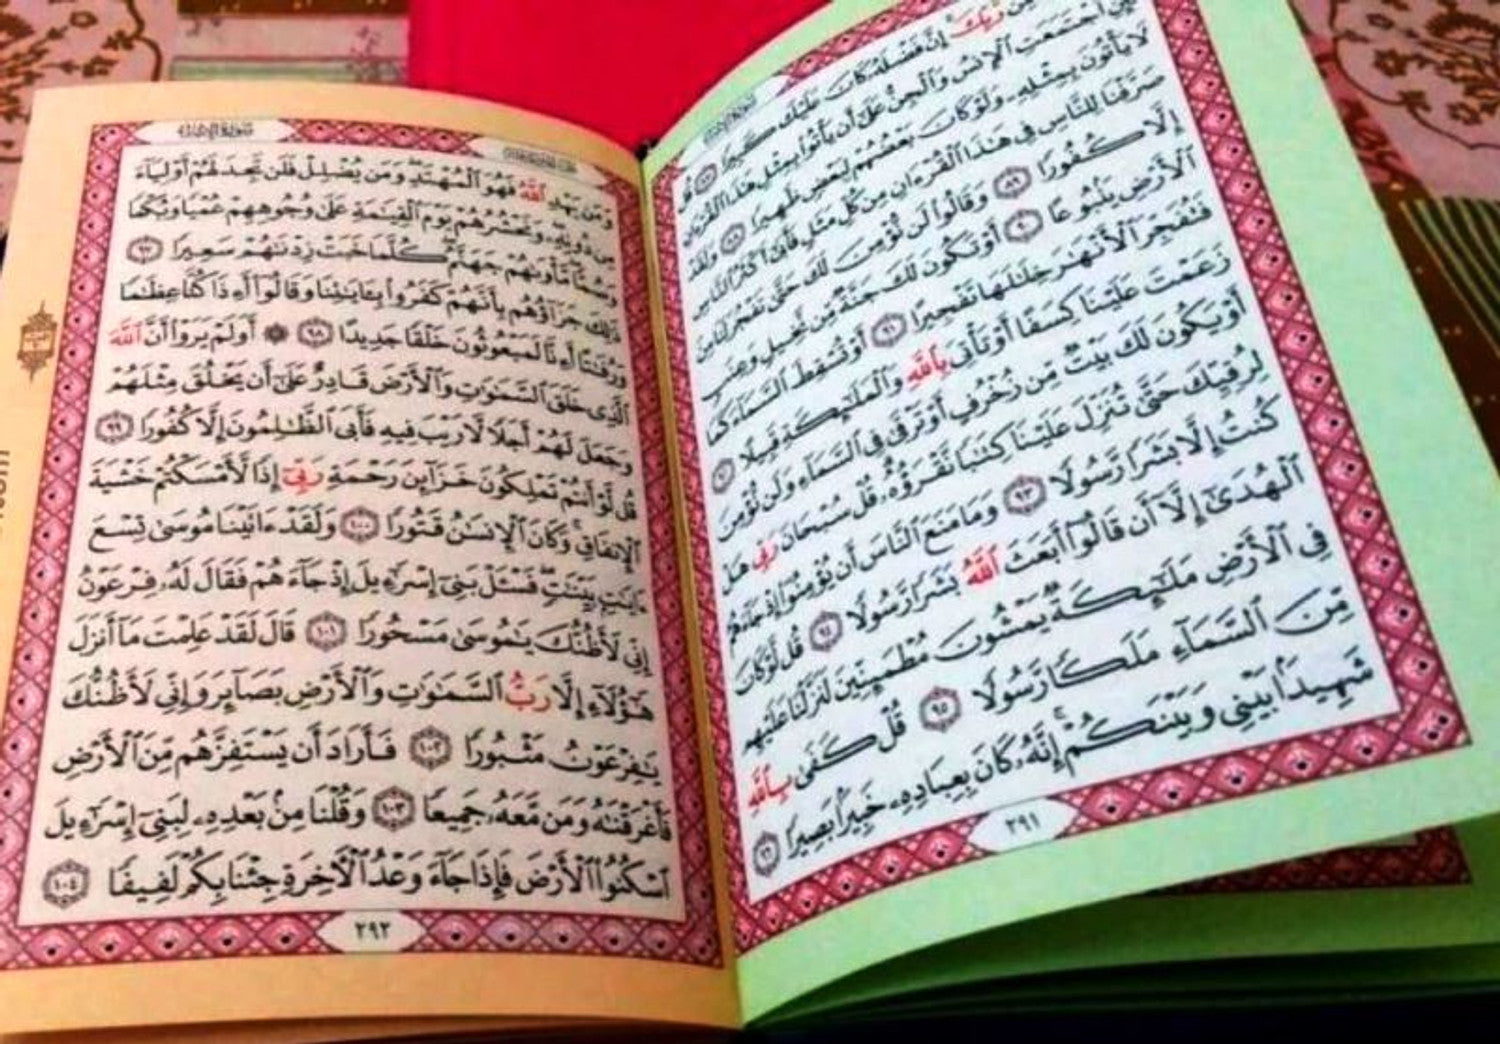 من ربك إن فضله كان عليك كبيرا ٨٧ قل
لئن اجتمعت الإنس والجن على أن يأتوا بمثل هذا القرءان
لا يأتون بمثله ولو كان بعضهم لبعض ظهيرا ٨٨ ولقد
صرفنا للناس في هذا القرءان من كل مثل فأبى أكثر الناس
إلا كفورا ٨٩ وقالوا لن نؤمن لك حتى تفجر لنا من
الأرض ينبوعا ٩٠ أو تكون لك جنة من نخيل وعنب
فتفجر الأنهر خللها تفجيرا ٩١ أو تسقط السماء كما
زعمت علينا كسفا أو تأتي بالله والملئكة قبيلا ٩٢
أو يكون لك بيت من زخرف أو ترقى في السماء ولن نؤمن
لرقيك حتى تنزل علينا كتبا نقرؤه قل سبحان ربي هل
كنت إلا بشرا رسولا ٩٣ وما منع الناس أن يؤمنوا إذ جاءهم
الهدى إلا أن قالوا أبعث الله بشرا رسولا ٩٤ قل لو كان
في الأرض ملئكة يمشون مطمئنين لنزلنا عليهم
من السماء ملكا رسولا ٩٥ قل كفى بالله
شهيدا بيني وبينكم إنه كان بعباده خبيرا بصيرا ٩٦
٢٩١
سورة الإسراء
ومن يهد الله فهو المهتد ومن يضلل فلن تجد لهم أولياء
من دونه ونحشرهم يوم القيمة على وجوههم عميا وبكما
وصما مأوىهم جهنم كلما خبت زدنهم سعيرا ٩٧
ذلك جزاؤهم بأنهم كفروا بءايتنا وقالوا أءذا كنا عظما
ورفتا أءنا لمبعوثون خلقا جديدا ٩٨ ۞ أولم يروا أن الله
الذي خلق السموت والأرض قادر على أن يخلق مثلهم
وجعل لهم أجلا لا ريب فيه فأبى الظلمون إلا كفورا ٩٩
قل لو أنتم تملكون خزائن رحمة ربي إذا لأمسكتم خشية
الإنفاق وكان الإنسن قتورا ١٠٠ ولقد ءاتينا موسى تسع
ءايت بينت فسئل بني إسرءيل إذ جاءهم فقال له فرعون
إني لأظنك يموسى مسحورا ١٠١ قال لقد علمت ما أنزل
هؤلاء إلا رب السموت والأرض بصائر وإني لأظنك
يفرعون مثبورا ١٠٢ فأراد أن يستفزهم من الأرض
فأغرقنه ومن معه جميعا ١٠٣ وقلنا من بعده لبني إسرءيل
اسكنوا الأرض فإذا جاء وعد الأخرة جئنا بكم لفيفا ١٠٤
٢٩٢